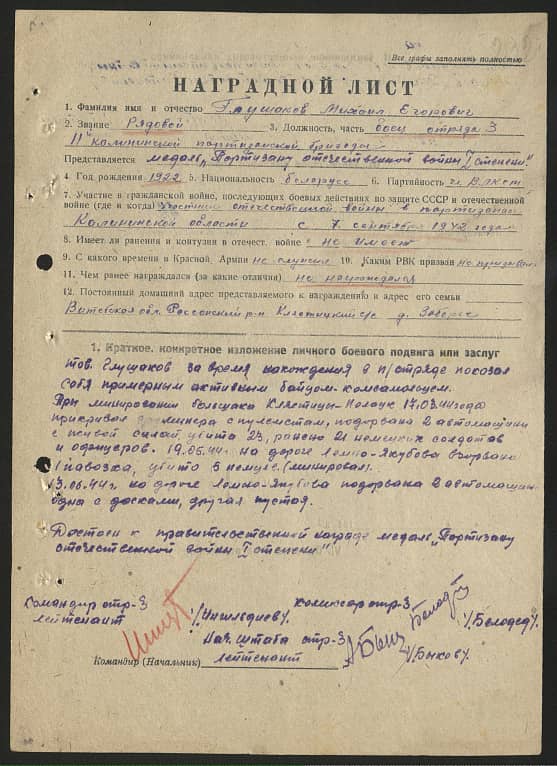 Все графы заполнять полностью
НАГРАДНОЙ ЛИСТ
1. Фамилия имя и отчество Глушаков Михаил Егорович
2. Звание Рядовой 3. Должность, часть боец отряда 3
11 Калининской партизанской бригады
Представляется медаль „Партизану отечественной войны I степени"
4. Год рождения 1922 5. Национальность белорус 6. Партийность чл. ВЛКСМ
7. Участие в гражданской войне, последующих боевых действиях по защите СССР и отечественной
войне (где и когда) отечественной войны в партизанах
Калининской области с 7 сентября 1942 года
8. Имеет ли ранения и контузии в отечест. войне не имеет
9. С какого времени в Красной Армии не служил 10. Каким РВК призван не призывал
11. Чем ранее награждался (за какие отличия) не награждался
12. Постоянный домашний адрес представляемого к награждению и адрес его семьи
Витебская обл. Россонский р-н Клястицкий с/с д.
1. Краткое, конкретное изложение личного боевого подвига или заслуг
тов. Глушаков за время нахождения в п/отряде показал
себя примерным активным байцом-комсамольцем.
При минировании большака Клястицы-Полоцк 17.03.44 года
прикривал минера с пулеметам, подорвана 2 автомашины
с живой силай, убита 23, ранено 21 немецких солдатов
и офицеров. 19.06.44г. на дороге Якубова взорвана
1 павозка, убито 3 немцев. (минировал).
13.06.44г. на дороге Якубова подорвана 2 автомашин
одна с досками, другая пустая.
Достоен к правительственной награде медаль „Партизану
отечественной войны I степени"
Командир отр-3 комиссар отр-3
лейтенант /Белодед/.
Нач. штаба отр-3
Командир (Начальник) лейтенант /Быков/.